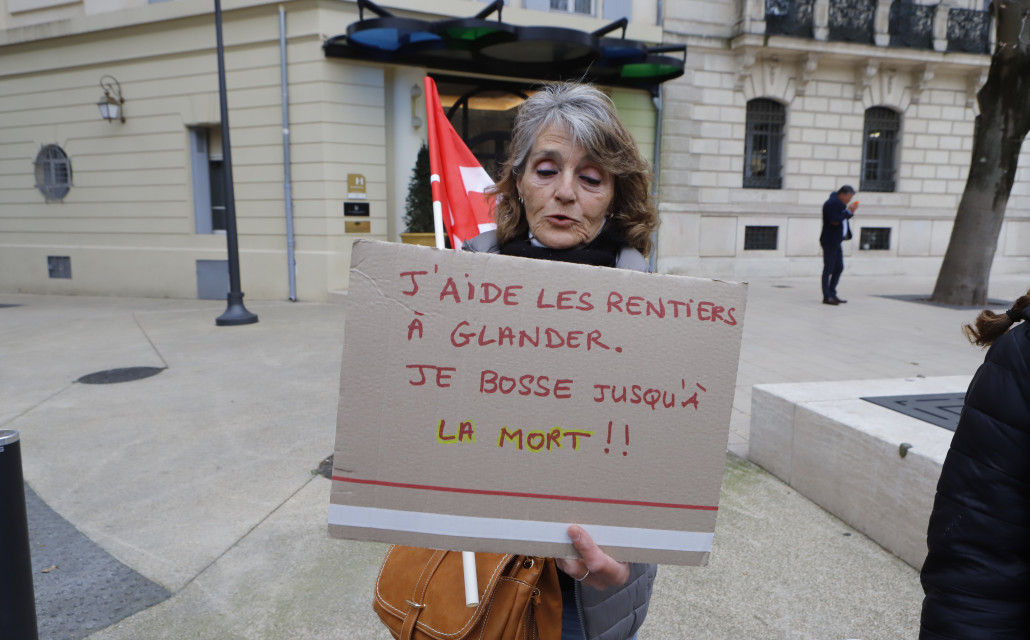 J'AIDE LES RENTIERS
À GLANDER.
JE BOSSE JUSQU'À
LA MORT !!